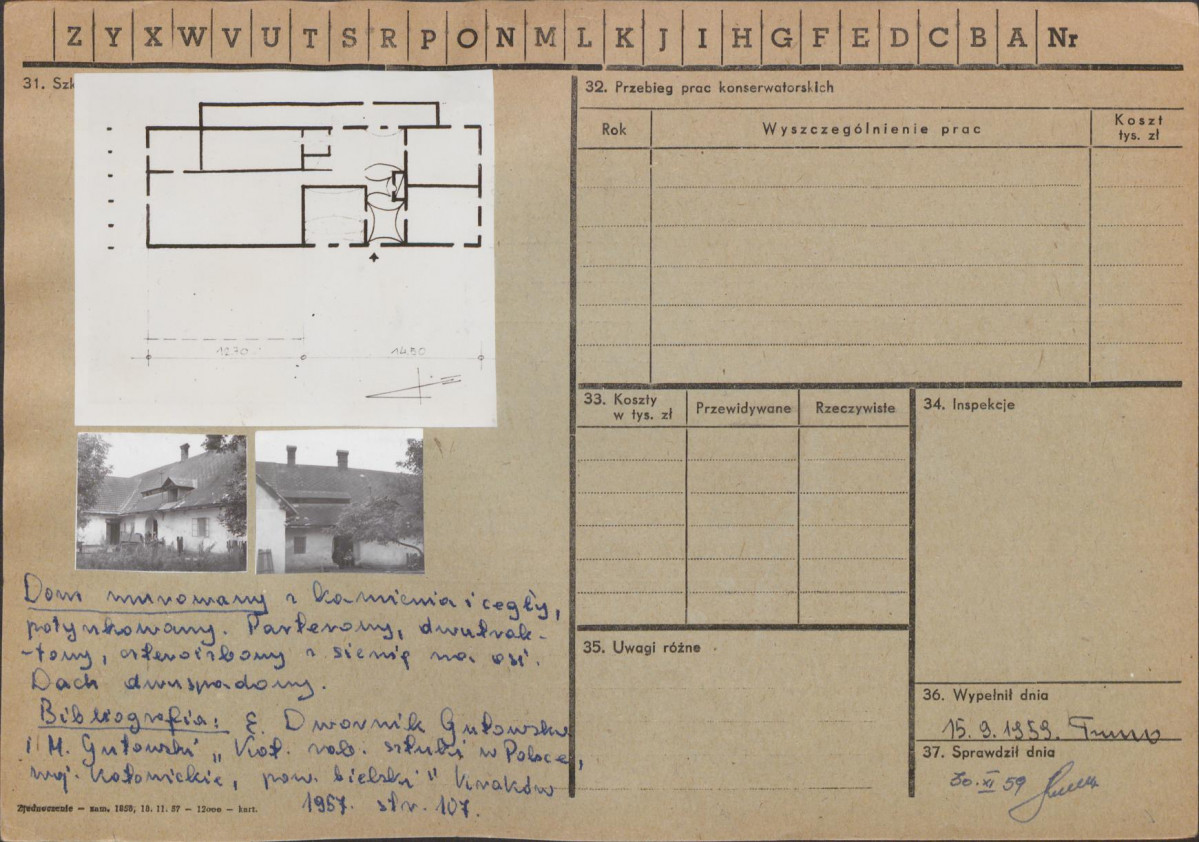 Z Y X W V U T S R P O N M L K J I H G F E D C B A Nr
31. Szk
12.70 14.50
Dom murowany z kamienia i cegły,
potynkowany. Parterowy, dwutrak-
-towy, czteroizbowy z sienią na osi.
Dach dwuspadowy.
Bibliografia: E. Dwornik Gutowska
i M. Gutowski „Kat. zab. sztuki w Polsce,
woj. katowickie, pow. bielski" Kraków
1957. str. 107.
Zjednoczenie — zam. 1858, 18. 11. 57 — 12000 — kart.
32. Przebieg prac konserwatorskich
Rok Wyszczególnienie prac Koszt
tys. zł
33. Koszty
w tys. zł Przewidywane Rzeczywiste
34. Inspekcje
35. Uwagi różne
36. Wypełnił dnia
15. 9. 1959.
37. Sprawdził dnia
30. XI 59